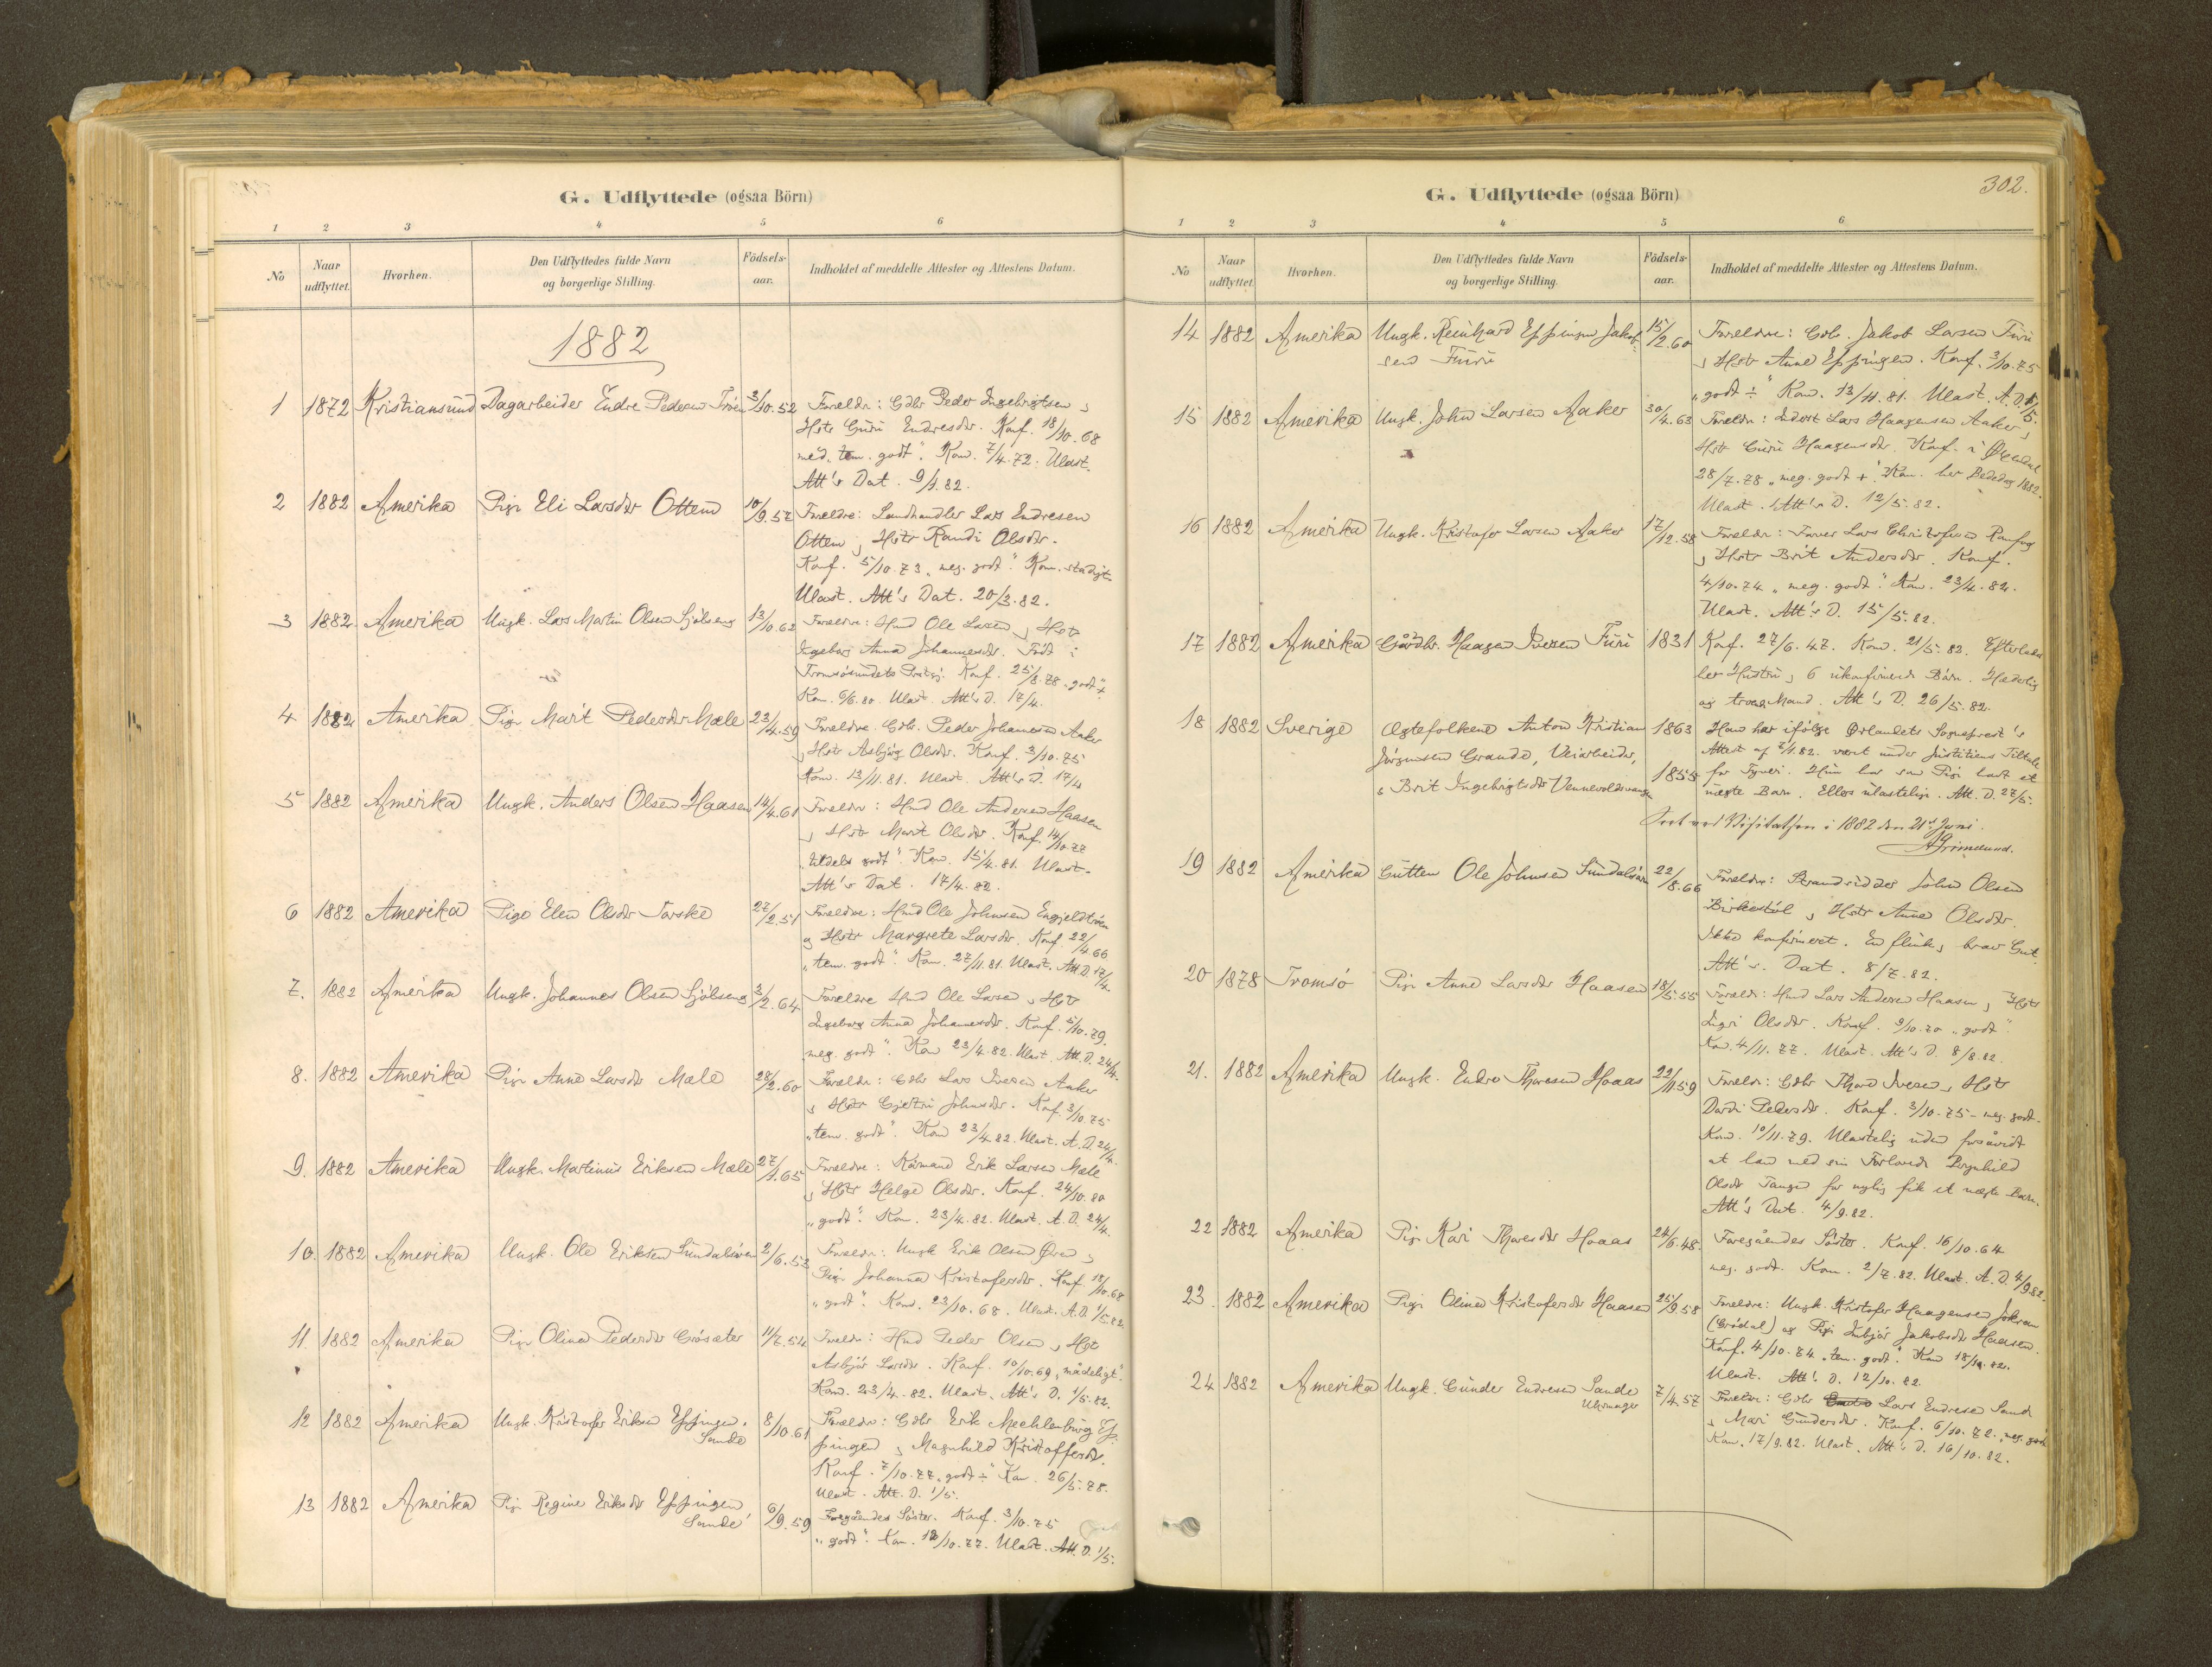 G. Udflyttede (ogsaa Börn)
1 2 3 4 5 6
No
Naar udflyttet.
Hvorhen.
Den Udflyttedes fulde Navn og borgerlige Stilling.
Födsels-aar.
Indholdet af meddelte Attester og Attestens Datum.
1882
1 1872 Kristiansund Dagarbeider Endre Pedersen 3/10.52 Forældr: Gdbr Peder Ingebrigtsen
Hstr Guri Endresdr. Konf. 18/10.68
med. tem. godt". Kom. 7/4.72. Ulast.
Att's Dat. 9/1.82.
2 1882 Amerika Pige Eli Larsdr Ottem 10/9.57 Forældre: Landhandler Lars Endresen
Ottem, Hstr Randi Olsdr.
Konf. 5/10.73 „meg. godt". Kom. stadigt
Ulast. Att's Dat. 20/3.82.
3 1882 Amerika Ungk. Lars Martin Olsen 13/10.62 Forældre: Hmd Ole Larsen, Hstr
Ingeborg Anna Johannesdr. Født i
Tromsøsundets Konf. 25/8.78 „godt"+
Kom. 6/6.80 Ulast. Att's D. 17/4.
4 1882 Amerika Pige Marit Pedersdr Mæle 23/4.59 Forældre: Gdbr. Peder Johannesen Aaker
Hstr Asbjør Olsdr. Konf. 3/10.75
Kom. 13/11.81. Ulast. Att's D. 17/4
5 1882 Amerika Ungk. Anders Olsen Haasen 14/4.61 Forældr: Hmd Ole Andersen Haasen
, Hstr Marit Olsdr. Konf. 14/10.77
godt". Kom. 15/4.81. Ulast.
Att's Dat. 17/4.82.
6 1882 Amerika Pige Elen Olsdr Torske 27/2.51 Forældre: Hmd Ole Johnsen
og Hstr Margrete Larsdr. Konf. 22/4.66
„tem. godt". Kom. 27/11.81. Ulast. Att. D. 17/4.
7. 1882 Amerika Ungk. Johannes Olsen 3/2.64 Forældre Hmd Ole Larsen, Hstr
Ingeborg Anna Johannesdr. Konf. 5/10.79.
meg. godt". Kom 23/4.82. Ulast. Att. D. 24/4.
8. 1882 Amerika Pige Anne Larsdr Mæle 28/2.60 Forældr: Gdbr Lars Iversen Aaker
, Hstr Gjertru Johnsdr. Konf. 3/10.75
„tem. godt". Kom 23/4.82. Ulast. A. D. 24/4.
9. 1882 Amerika Ungk. Martinus Eriksen Mæle 27/1.65 Forældre: Kårmand Erik Larsen Mæle
, Hstr Helge Olsdr. Konf. 24/10.80
„godt". Kom. 23/4.82. Ulast. A. D. 24/4.
10. 1882 Amerika Ungk. Ole Eriksen Sundalsøren 2/6.53 Forældr: Ungk Erik Olsen Øren,
Pige Johanna Kristofersdr. Konf. 18/10.68
„godt". Kom. 23/10.68. Ulast. A. D. 1/5.82
11. 1882 Amerika Pige Olina Pedersdr 11/7.54 Forældr: Hmd Peder Olsen, Hstr
Asbjør Larsdr. Konf. 10/10.69 „mådeligt".
Kom. 23/4.82. Ulast. Att's D. 1/5.82.
12 1882 Amerika Ungk. Kristofer Eriksen Eppingen. Sande 8/10.61 Forældr: Gdbr Erik Mechlenburg Ep-
pingen, Magnhild Kristoffersdr.
Konf. 7/10.77 „godt ÷" Kom. 26/5.78.
Ulast. Att. D. 1/5.
13 1882 Amerika Pige Regine Eriksdr Eppingen Sande 6/9.59 Foregåendes Søster. Konf. 3/10.75
„godt". Kom. 18/10.77. Ulast. Att. D. 1/5.
302.
G. Udflyttede (ogsaa Börn)
1 2 3 4 5 6
No
Naar udflyttet.
Hvorhen.
Den Udflyttedes fulde Navn og borgerlige Stilling.
Födsels-aar.
Indholdet af meddelte Attester og Attestens Datum.
14 1882 Amerika Ungk. Reinhard Eppingen Jakob- 15/2.60 Forældre: Gdbr. Jakob Larsen Furu
sen Furu , Hstr Anne Eppingen. Konf. 3/10.75
„godt ÷" Kom. 13/11.81. Ulast. A. D. 1/5.
15 1882 Amerika Ungk. John Larsen Aaker 30/4.63 Forældr: Inderst Lars Haagensen Aaker,
Hstr Guri Haagensdr. Konf. i Øksendal
28/7.78 „meg. godt +" Kom. her Bededag 1882.
Ulast. Att's D. 12/5.82.
16 1882 Amerika Ungk. Kristofer Larsen Aaker 17/12.58 Forældr: Lars Christofersen
, Hstr Brit Andersdr. Konf.
4/10.74 „meg. godt". Kom. 23/4.82.
Ulast. Att's D. 15/5.82.
17 1882 Amerika Gårdbr. Haagen Iversen Furu 1831 Konf. 27/6.47. Kom. 21/5.82. Efterlader
Hustru, 6 ukonfirmerede Børn. Hæderlig
og Mand. Att's D. 26/5.82.
18 1882 Sverige Ægtefolkene Anton Kristian 1863 Han har ifølge Ørlandets Sogneprest's
Jørgensen Grande, Veiarbeider, Attest af 2/1.82. vært under Justitiens Tiltale
, Brit Ingebrigtsdr 1855 for Tyveri. Hun har som Pige havt et
uægte Barn. Ellers ulastelige. Att. D. 27/5.
ved Visitatsen i 1882 den 21de Juni.
Grimelund.
19 1882 Amerika Gutten Ole Johnsen Sundalsøren 22/8.66 Forældre: Strandsidder John Olsen
Birkestøl, Hstr Anne Olsdr.
Ikke konfirmeret. En flink, brav Gut.
Att's. Dat. 8/7.82.
20 1878 Tromsø Pige Anne Larsdr Haasen 18/5.55 Foreldr: Hmd Lars Andersen Haasen, Hstr
Olsdr. Konf. 9/10.70 „godt".
Kom. 4/11.77. Ulast. Att's D. 8/8.82.
21. 1882 Amerika Ungk. Endre Thoresen Hoaas 22/11.59 Forældr: Gdbr Thore Iversen, Hstr
Dordi Pedersdr. Konf. 3/10.75 – meg. godt.
Kom. 10/11.79. Ulastelig uden forsåvidt
at han med sin Forlovede
Olsdr Tange for nylig fik et uægte Barn.
Att's Dat. 4/9.82.
22 1882 Amerika Pige Kari Thoresdr Hoaas 24/6.48. Foregåendes Søster. Konf. 16/10.64
meg. godt. Kom. 2/7.82. Ulast. A. D. 4/9 82.
23. 1882 Amerika Pige Olina Kristofersdr Haasen 25/9.58 Forældre: Ungk. Kristofer Haagensen
(Grødal) og Pige Jakobsdr Haasen.
Konf. 4/10.74 „tem. godt". Kom 18/10.82.
Ulast. Att. D. 12/10.82.
24 1882 Amerika Ungk. Gunder Endresen Sande 7/4.57 Forældr: Gdbr Lars Endresen Sande
Uhrmager , Mari Gundersdr. Konf. 6/10.72. „meg. godt
Kom. 17/9.82. Ulast. Att's D. 16/10.82.